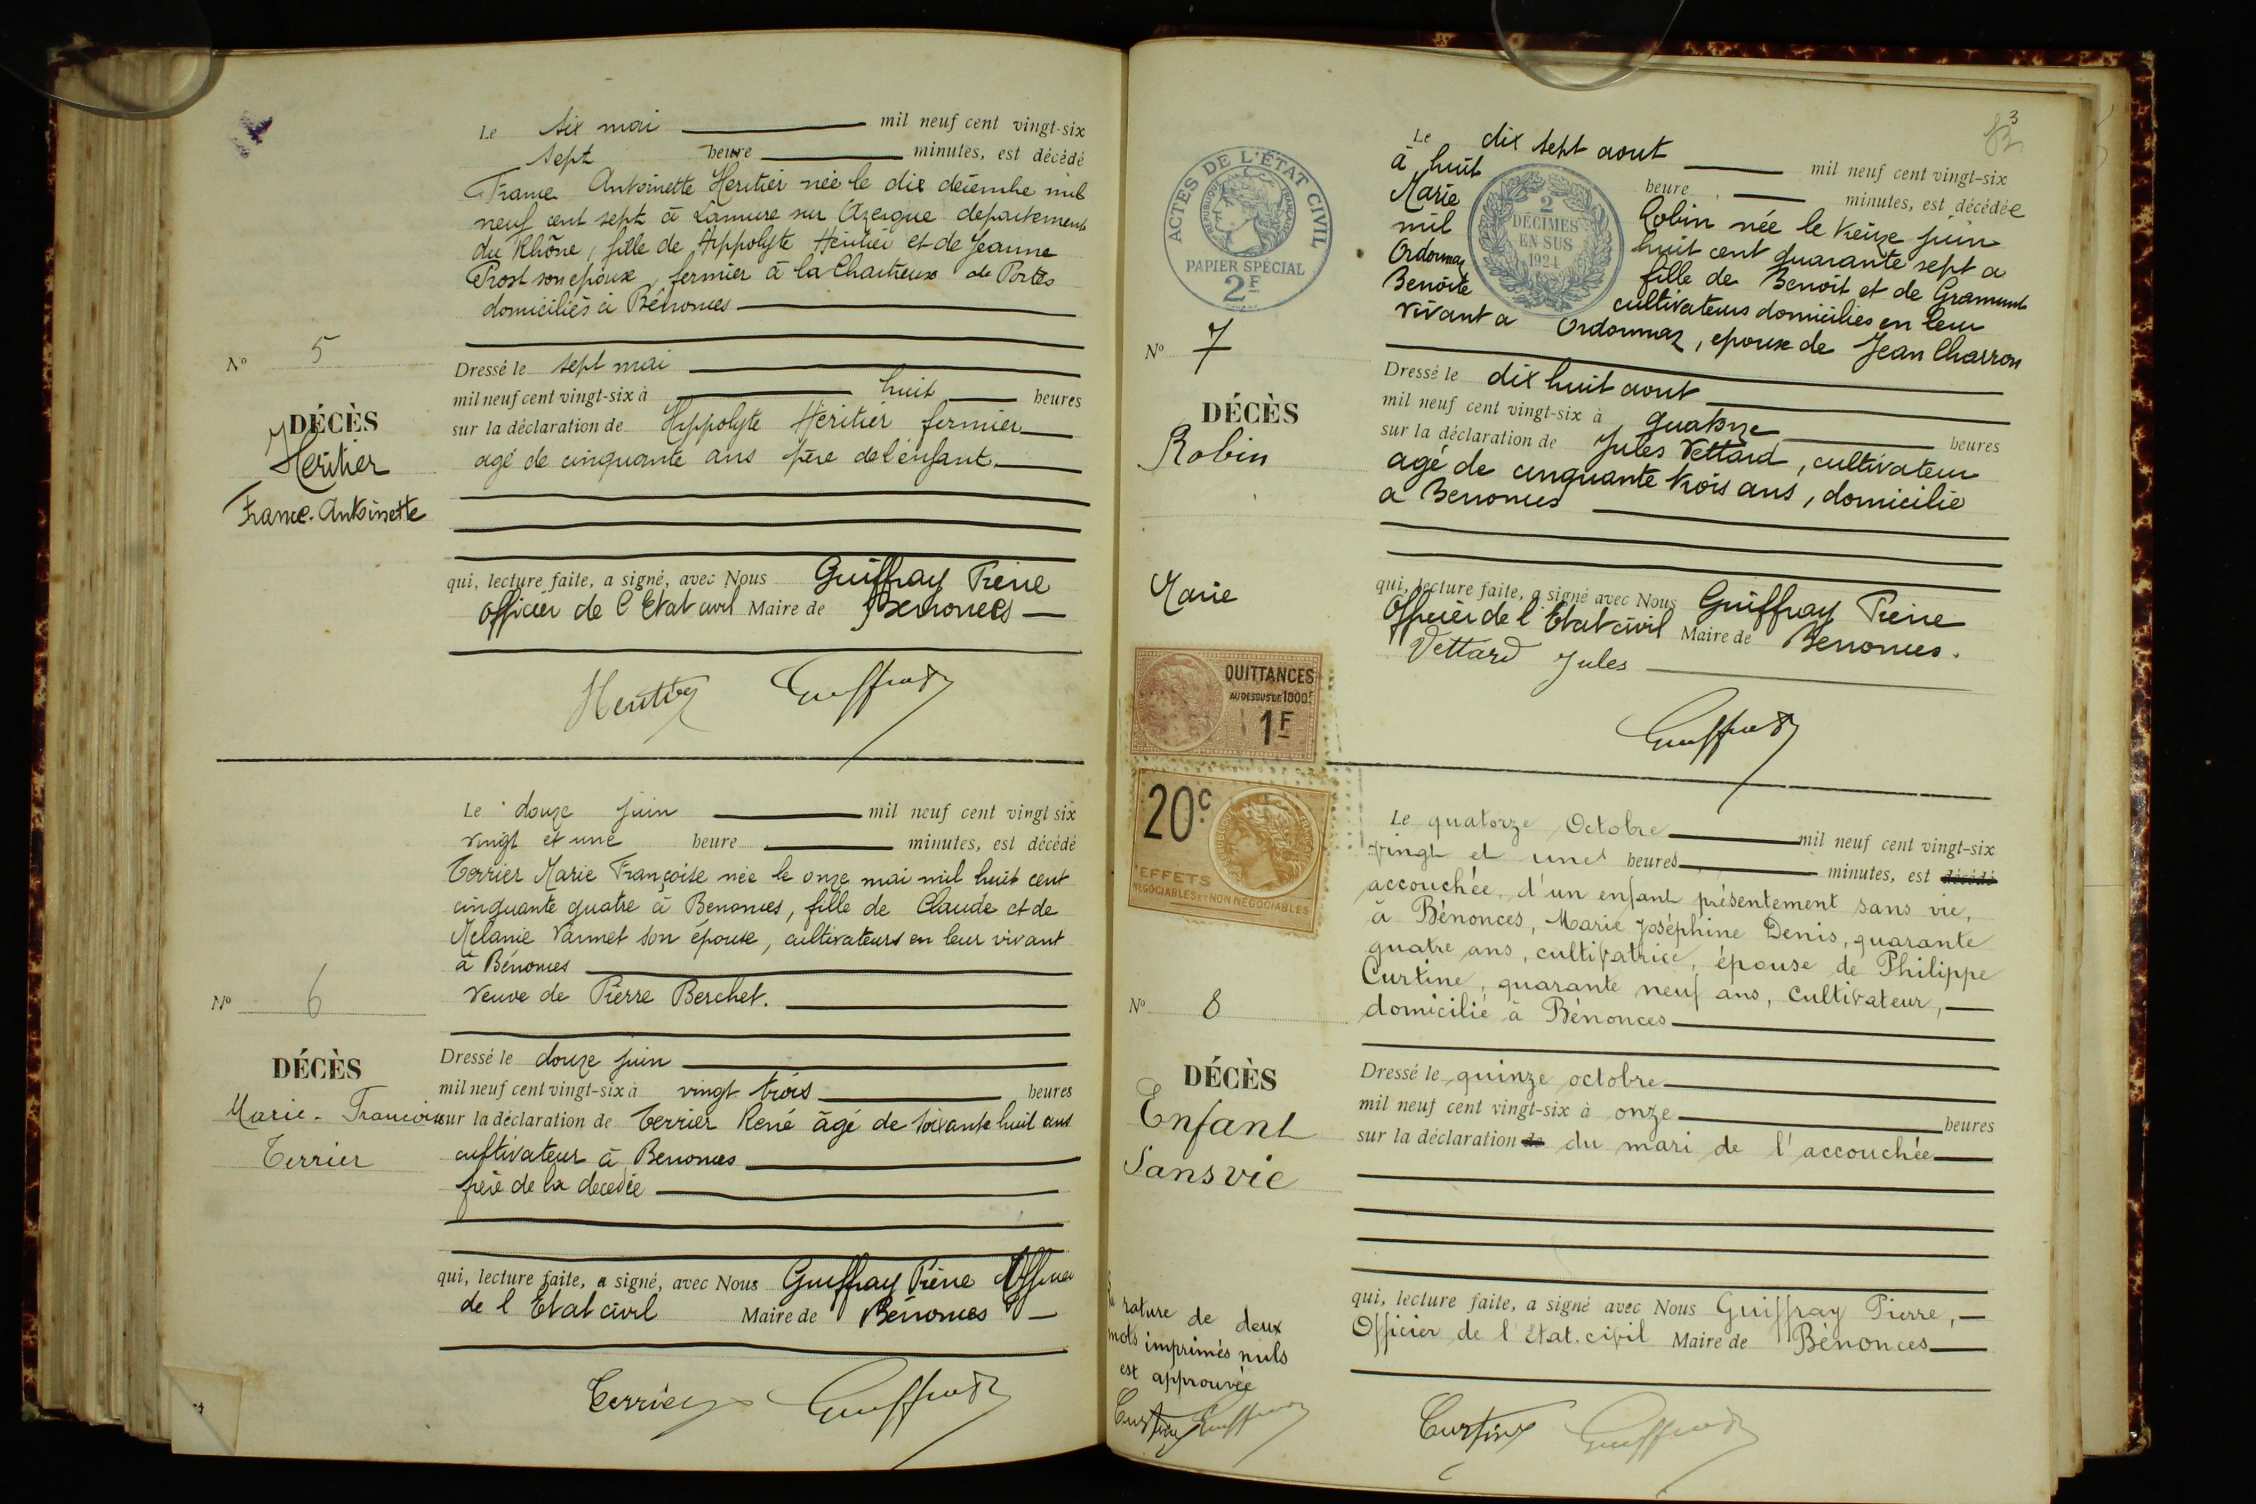 Le six mai mil neuf cent vingt-six
sept heure minutes, est décédé
France Antoinette Heritier née le dix décembre mil
neuf cent sept à Lamure sur Azergue departement
du Rhône, fille de Hippolyte Héritier et de Jeanne
Prost son epouse, fermier à la Chartreuse de Portes
domiciliés à Bénonces
N° 5
DÉCÈS
Heritier
France-Antoinette
Dressé le sept mai
mil neuf cent vingt-six à huit heures
sur la déclaration de Hippolyte Héritier fermier
agé de cinquante ans père de l'enfant
qui, lecture faite, a signé, avec Nous Guiffray Pierre
officier de l'Etat civil Maire de Benonces
Heritier Guiffray
Le douze juin mil neuf cent vingt six
vingt et une heure minutes, est décédé
Terrier Marie Françoise née le onze mai mil huit cent
cinquante quatre à Benonces, fille de Claude et de
Melanie Varmet son épouse, cultivateurs en leur vivant
à Bénonces
veuve de Pierre Berchet.
N° 6
DÉCÈS
Marie-Francoise
Terrier
Dressé le douze juin
mil neuf cent vingt-six à vingt trois heures
sur la déclaration de Terrier René âgé de soixante huit ans
cultivateur à Benonces
frère de la decedée
qui, lecture faite, a signé, avec Nous Guiffray Pierre Officier
de l'Etat civil Maire de Bénonces
Terrier Guiffray
83
Le dix sept aout mil neuf cent vingt-six
à huit heure minutes, est décédée
Marie Robin née le treize juin
mil huit cent quarante sept a
Ordonnaz fille de Benoit et de Gramunt
Benoite cultivateurs domiciliés en leur
vivant a Ordonnaz, epouse de Jean Charron
ACTES DE L'ÉTAT CIVIL
RÉPUBLIQUE FRANÇAISE
PAPIER SPÉCIAL
2F
2
DÉCIMES
EN SUS
1924
N° 7
DÉCÈS
Robin
Marie
Dressé le dix huit aout
mil neuf cent vingt-six à quatorze heures
sur la déclaration de Jules Vettard, cultivateur
agé de cinquante trois ans, domicilié
a Benonces
qui, lecture faite, a signé avec Nous Guiffray Pierre
Officier de l'Etat civil Maire de Benonces.
Vettard Jules
Guiffray
QUITTANCES
AU DESSUS DE 1000F
1F
20c
EFFETS
NÉGOCIABLES ET NON NÉGOCIABLES
Le quatorze Octobre mil neuf cent vingt-six
vingt et une heures minutes, est décédé
accouchée, d'un enfant présentement sans vie,
à Bénonces, Marie Joséphine Denis, quarante
quatre ans, cultivatrice, épouse de Philippe
Curtine, quarante neuf ans, cultivateur,
domicilié à Bénonces
N° 8
DÉCÈS
Enfant
Sans vie
Dressé le quinze octobre
mil neuf cent vingt-six à onze heures
sur la déclaration de du mari de l'accouchée
qui, lecture faite, a signé avec Nous Guiffray Pierre,
Officier de l'Etat.civil Maire de Bénonces
La rature de deux
mots imprimés nuls
est approuvée
Curtine Guiffray
Curtine Guiffray